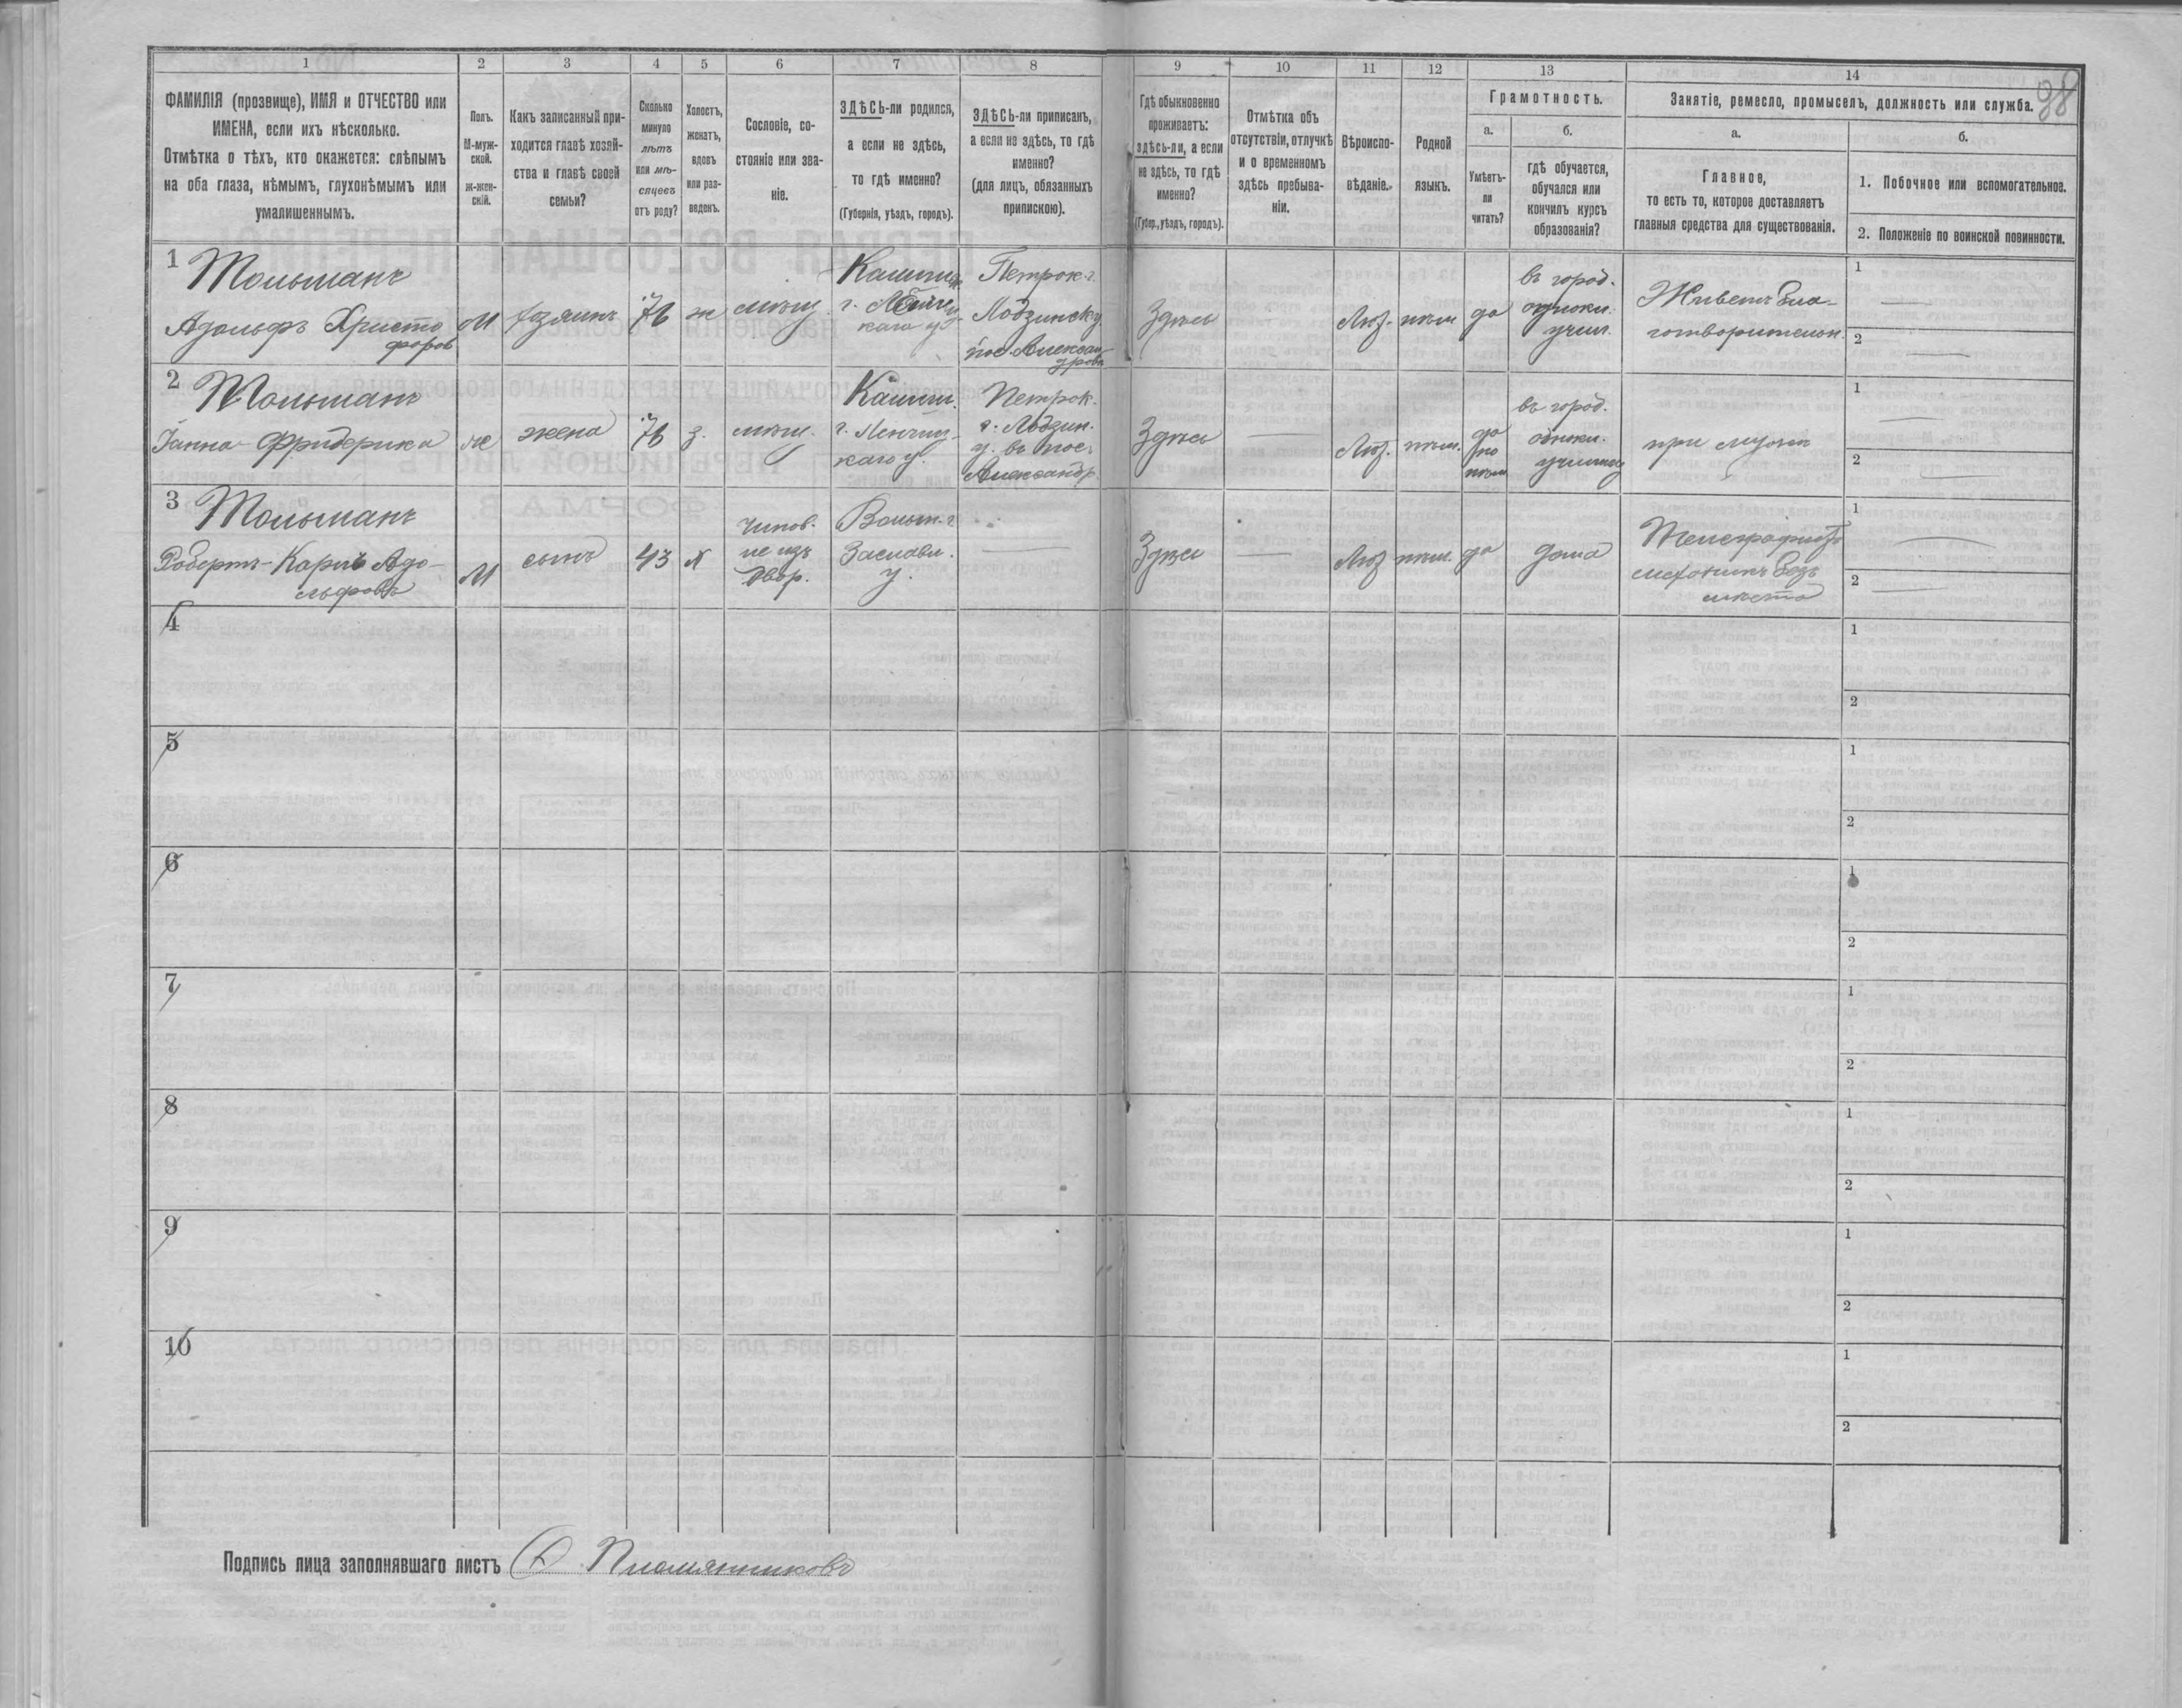 38
1 2 3 4 5 6 7 8 9 10 11 12 13 14
ФАМИЛІЯ (прозвище), ИМЯ и ОТЧЕСТВО или
ИМЕНА, если ихъ нѣсколько.
Отмѣтка о тѣхъ, кто окажется: слѣпымъ
на оба глаза, нѣмымъ, глухонѣмымъ или
умалишеннымъ.
Полъ.
М-муж-
ской.
ж-жен-
скій.
Какъ записанный при-
ходится главѣ хозяй-
ства и главѣ своей
семьи?
Сколько
минуло
лѣтъ
или мѣ-
сяцевъ
отъ роду?
Холостъ,
женатъ,
вдовъ
или раз-
веденъ.
Сословіе, со-
стояніе или зва-
ніе.
ЗДѢСЬ-ли родился,
а если не здѣсь,
то гдѣ именно?
(Губернія, уѣздъ, городъ).
ЗДѢСЬ-ли приписанъ,
а если не здѣсь, то гдѣ
именно?
(для лицъ, обязанныхъ
припискою).
Гдѣ обыкновенно
проживаетъ:
здѣсь-ли, а если
не здѣсь, то гдѣ
именно?
(Губер., уѣздъ, городъ).
Отмѣтка объ
отсутствіи, отлучкѣ
и о временномъ
здѣсь пребыва-
ніи.
Вѣроиспо-
вѣданіе.
Родной
языкъ.
Грамотность.
а.
Умѣетъ-
ли
читать?
б.
гдѣ обучается,
обучался или
кончилъ курсъ
образованія?
Занятіе, ремесло, промыселъ, должность или служба.
а.
Главное,
то есть то, которое доставляетъ
главныя средства для существованія.
б.
1. Побочное или вспомогательное.
2. Положеніе по воинской повинности.
1 Тольманъ
Адольфъ Христо
форов
М
хозяинъ
76
ж
мѣщ.
г.
каго у.
Петрок. г.
Лодзинску
пос. Алексан
дровъ
Здѣсь
Лют.
нѣм
да
въ город.
училищ.
Живетъ бла-
готворительн.
1
2
2 Тольманъ
Іанна-Фридерика
ж
жена
76
з.
мѣщ.
Калиш.
г. Ленчиц-
каго у.
Петрок.
г. Лодзин.
у. въ пос.
Александр.
Здѣсь
Лют.
нѣм.
да
по
нѣм
въ город.
училищ
при мужѣ
1
2
3 Тольманъ
Робертъ-Карлъ Адо-
льфовъ
М
сынъ
43
х
чинов.
не изъ
двор.
Волын. г.
Заславл.
у.
Здѣсь
Лют
нѣм.
да
дома
Телеграфистъ
механикъ безъ
мѣста
1
2
4
1
2
5
1
2
6
1
2
7
1
2
8
1
2
9
1
2
10
1
2
Подпись лица заполнявшаго листъ